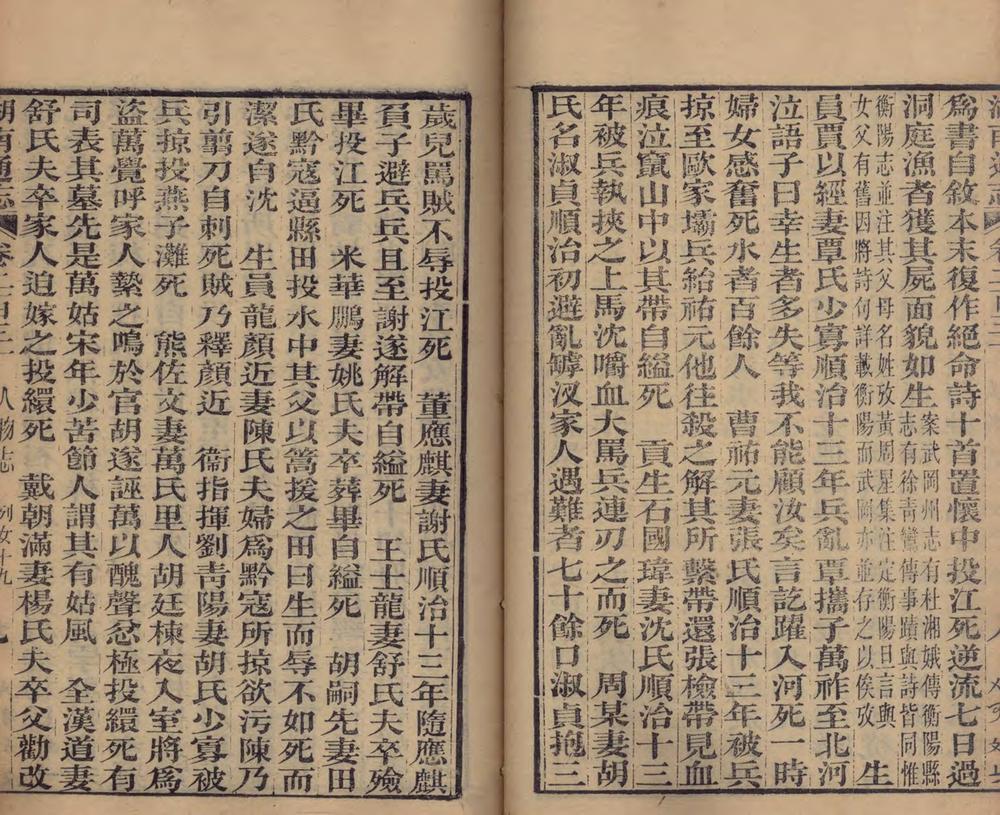 爲書自敘本末復作絕命詩十首置懷中投江死逆流七日過
洞庭漁者獲其屍面貌如生案武岡州志有杜湘娥傳衡陽縣
志有徐靑鸞傳事蹟與詩皆同惟
衡陽志並注其父母名姓攷黃周星集注定衡陽曰言與
女父有舊因將詩句詳載衡陽而武岡亦並存之以俟攷 生
員賈以經妻覃氏少寡順治十三年兵亂覃攜子萬祚至北河
泣語子曰幸生者多失等我不能顧汝矣言訖躍入河死一時
婦女感奮死水者百餘人 曹祐元妻張氏順治十三年被兵
掠至歐家壩兵紿祐元他往殺之解其所繫帶還張檢帶見血
痕泣竄山中以其帶自縊死 貢生石國瑋妻沈氏順治十三
年被兵執挾之上馬沈嚼血大罵兵連刃之而死 周某妻胡
氏名淑貞順治初避亂罅汊家人遇難者七十餘口淑貞抱三
歲兒罵賊不辱投江死 董應麒妻謝氏順治十三年隨應麒
負子避兵兵且至謝遂解帶自縊死 王士龍妻舒氏夫卒殮
畢投江死 米華鵬妻姚氏夫卒葬畢自縊死 胡嗣先妻田
氏黔寇逼縣田投水中其父以篙援之田曰生而辱不如死而
潔遂自沈 生員龍顏近妻陳氏夫婦爲黔寇所掠欲污陳乃
引剪刀自刺死賊乃釋顏近 衞指揮劉靑陽妻胡氏少寡被
兵掠投燕子灘死 熊佐文妻萬氏里人胡廷棟夜入室將爲
盜萬覺呼家人縶之鳴於官胡遂誣萬以醜聲忿極投繯死有
司表其墓先是萬姑宋年少苦節人謂其有姑風 全漢道妻
舒氏夫卒家人迫嫁之投繯死 戴朝滿妻楊氏夫卒父勸改
湖南通志 卷二百四十三 人物志 列女十九